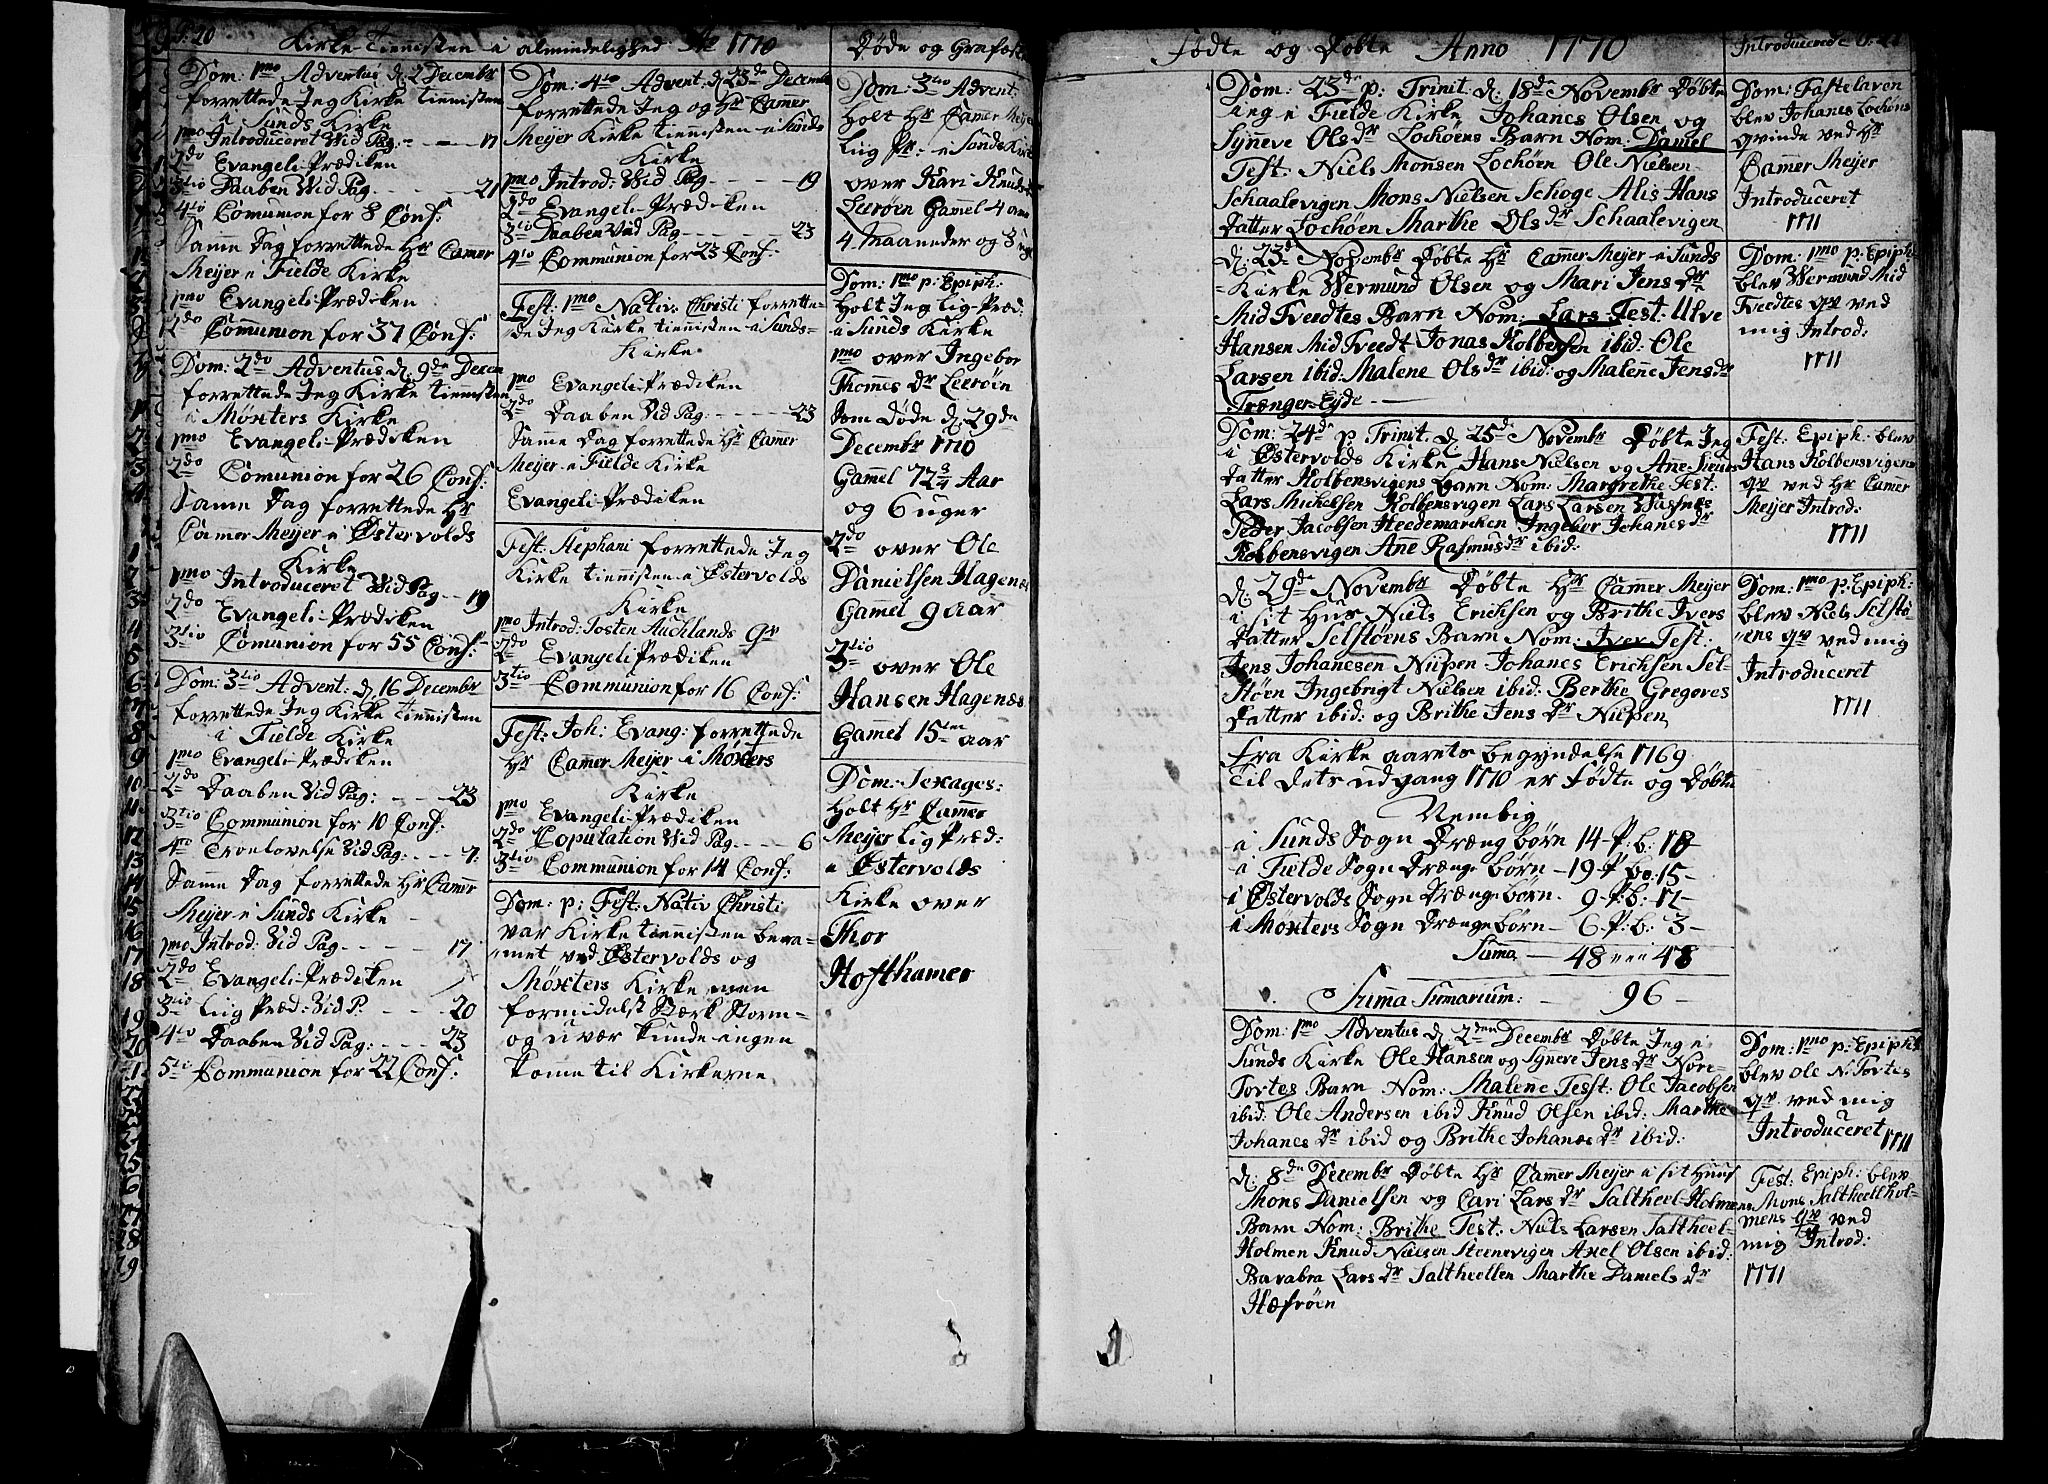 P: 20 Kirke tiennisten i almindelighed Ao 1770
Dom: 1mo Adventus d: 2 Decembr
forrettede Jeg Kirke tiennisten
i Sunds Kirke
1mo Introduceret Vid Pag: - - 17
2do Evangeli-Prædiken
3tio Daaben Vid Pag - - - - 21
4to Comunion for 8 Conf:
Samme Dag forrettede Hr Camer
Meijer i Fielde Kirke
1mo Evangeli-Prædiken
2do Communion for 37 Conf:
Dom: 2do Adventus d: 9de Decem
forrettede Jeg Kirke tiennisten
i Møxters Kirke
1mo Evangeli-Prædiken
2do Comunion for 26 Conf:
Samme Dag forrettede Hr
Camer Meijer i Østervolds
Kirke
1mo Introduceret Vid Pag - 19
2do Evangeli-Prædiken
3tio Comunion for 55 Conf:
Dom: 3tio Advent: d, 16 Decembr
forrettede Jeg Kirke tiennisten
i Fielde Kirke
1mo Evangeli-Prædiken
2do Daaben Vid Pag: - - - 23
3tio Communion for 10 Conf:
4to Troelovelse Vid Pag: - - - 7:
Samme Dag forrettede Hr Camer
Meijer i Sunds Kirke
1mo Introd: Vid Pag - - - - 17
2do Evangeli-Prædiken
3tio Liig Præd: Vid P. - - - 20
4to Daaben Vid Pag: - - - 23
5ti Communion for 22 Conf:
Dom: 4to Advent d: 23de Decembr
forrettede Jeg og Hr Camer
Meijer Kirke tiennisten i Sunds
Kirke
1mo Introd: Vid Pag - - - - 19
2do Evangeli-Prædiken
3tio Daaben Vid Pag - - - - 23
4to Communion for 23 Conf:
Fest: 1mo Nativ: Christi forrette-
de Jeg Kirke tiennisten i Sunds-
Kirke
1mo Evangeli-Prædiken
2do Daaben Vid Pag: - - - - 23
Samme Dag forrettede Hr Camer
Meijer i Fielde Kirke
Evangeli-Prædiken
Fest: Stephani forrettede Jeg
Kirke tiennisten i Østervolds
Kirke
1mo Introd: Tosten Aucklands Qv
2do Evangeli-Prædiken
3tio Communion for 16 Conf:
Fest: Joh: Evang: forrettede
Hr Camer Meijer i Møxters
Kirke
1mo Evangeli-Prædiken
2do Copulation Vid Pag - - - - 6
3tio Communion for 14 Conf:
Dom: p: Fest: Nativ Christi
var Kirke tiennisten bera-
met ved Østervolds og
Møxters Kirke men
formidelst Stærk Storm-
og uvær kunde ingen
kome til Kirkerne
Døde og Grafæst
Dom: 3tio Advent:
Holt Hr Camer Meijer
Liig Pr: i Sunds Kirke
over Kari Knuds
Leerøen Gammel 4 aar
4 Maaneder og 3 ug
Dom: 1mo p: Epiph:
Holt Jeg Lig-Præd:
i Sunds Kirke
1mo over Ingebor
Thomes dr Leerøen
som Døde d: 29de
Decembr 1770
Gammel 72 3/4 Aar
og 6 uger
2do over Ole
Danielsen Hagenæs
Gamel 9 aar
3tio
over Ole
Hansen Hagenæs
Gammel 15ten aar
Dom: Sexages:
Holt Hr Camer
Meijer Lig Præd:
i Østervolds
Kirke over
Thor
Hofthamer
Fødte og Døbte Anno 1770
Dom: 23de p: Trinit: d: 18de Novembr Døbte
Jeg i Fielde Kirke Johanes Olsen og
Synneve Ols dr Lochøens Barn Nom: Daniel
Test: Niels Monsen Lochøen Ole Nielsen
Schaalevigen Mons Nielsen Schoge Alis Hans
Datter Lochøen Marthe Ols dr Schaalevigen
d: 23de Novembr Døbte Hr Camer Meijer i Sunds
Kirke Wermund Olsen og Mari Jens dr
Mid Tvedtes Barn Nom: Lars Test: Ulve
Hansen Mid Tvedt Jonas Kolbensen ibid: Ole
Larsen ibid: Malene Ols dr ibid: og Malene Jens dr
Trænger-Eyde
Dom: 24de p. Trinit d 25de Novembr Døbte Jeg
i Østervolds Kirke Hans Nielsen og Ane
Datter Kolbensvigens Barn Nom: Margrethe Test:
Lars Michelsen Kolbensvigen Lars Larsen
Peder Jacobsen Heedemarcken Ingebor Johanes dr
Kolbensvigen Ane Rasmus dr ibid:
d: 29de Novembr Døbte Hr Camer Meijer
i sit Hus Niels Erichsen og Brithe Ivers
Datter Selstøens Barn Nom: Iver Test:
Jens Johanesen Niipen Johanes Erichsen Sel-
støen Ingebrigt Nielsen ibid: Berthe Gregores
Datter ibid: og Brithe Jens dr Niipen
Fra Kirke aarets begyndelse 1769
Til Dets udgang 1770 er Fødte og Døbte
Nemblig
i Sunds Sogn Drænge børn 14 P: b: 18
i Fielde Sogn Drænge børn - 19 P bø: 15 -
i Østervolds Sogn Drænge børn. 9 P: b: 17 -
i Møxters Sogn Drænge børn - 6 P: b: 3 -
Suma - 48 48
Summa Sumarium: - 96 -
Dom: 1mo Adventus d 2den Decembr Døbte Jeg i
Sunds Kirke Ole Hansen og Synneve Jens dr Nore-
Tortes Barn Nom: Malene Test: Ole Jacobsen
ibid: Ole Andersen ibid Knud Olsen ibid: Marthe
Johanes dr ibid og Brithe Johanes dr ibid:
d: 8de Decembr Døbte Hr Camer Meijer i sit Huus
Mons Danielsen og Cari Lars dr Saltheel-Holmens
Barn Nom: Brithe Test: Niels Larsen Saltheel-
Holmen Knud Nielsen Steenevigen Axel Olsen ibid:
Barabra Lars dr Saltheellen Marthe Daniels dr
Hæfrøen
Introducerede P: 21
Dom: Fastelaven
blev Johanes Lochøns
qvinde ved Hr
Camer Meijer
Introduceret
1771
Dom: 1mo p: Epiph:
blev Wermund Mid
Tvedtes qv ved
mig Introd:
1771
Fest: Epiph: blev
Hans Kolbensvigens
qv ved Hr Camer
Meijer Introd:
1771
Dom: 1mo p: Epiph:
blev Niels Selstø-
ens qv ved mig
Introduceret
1771
Dom: 1mo p: Epiph:
blev Ole N. Tortes
qv ved mig
Introduceret 1771
Fest: Epiph: blev
Mons Saltheelhol-
mens qv ved
mig Introd:
1771